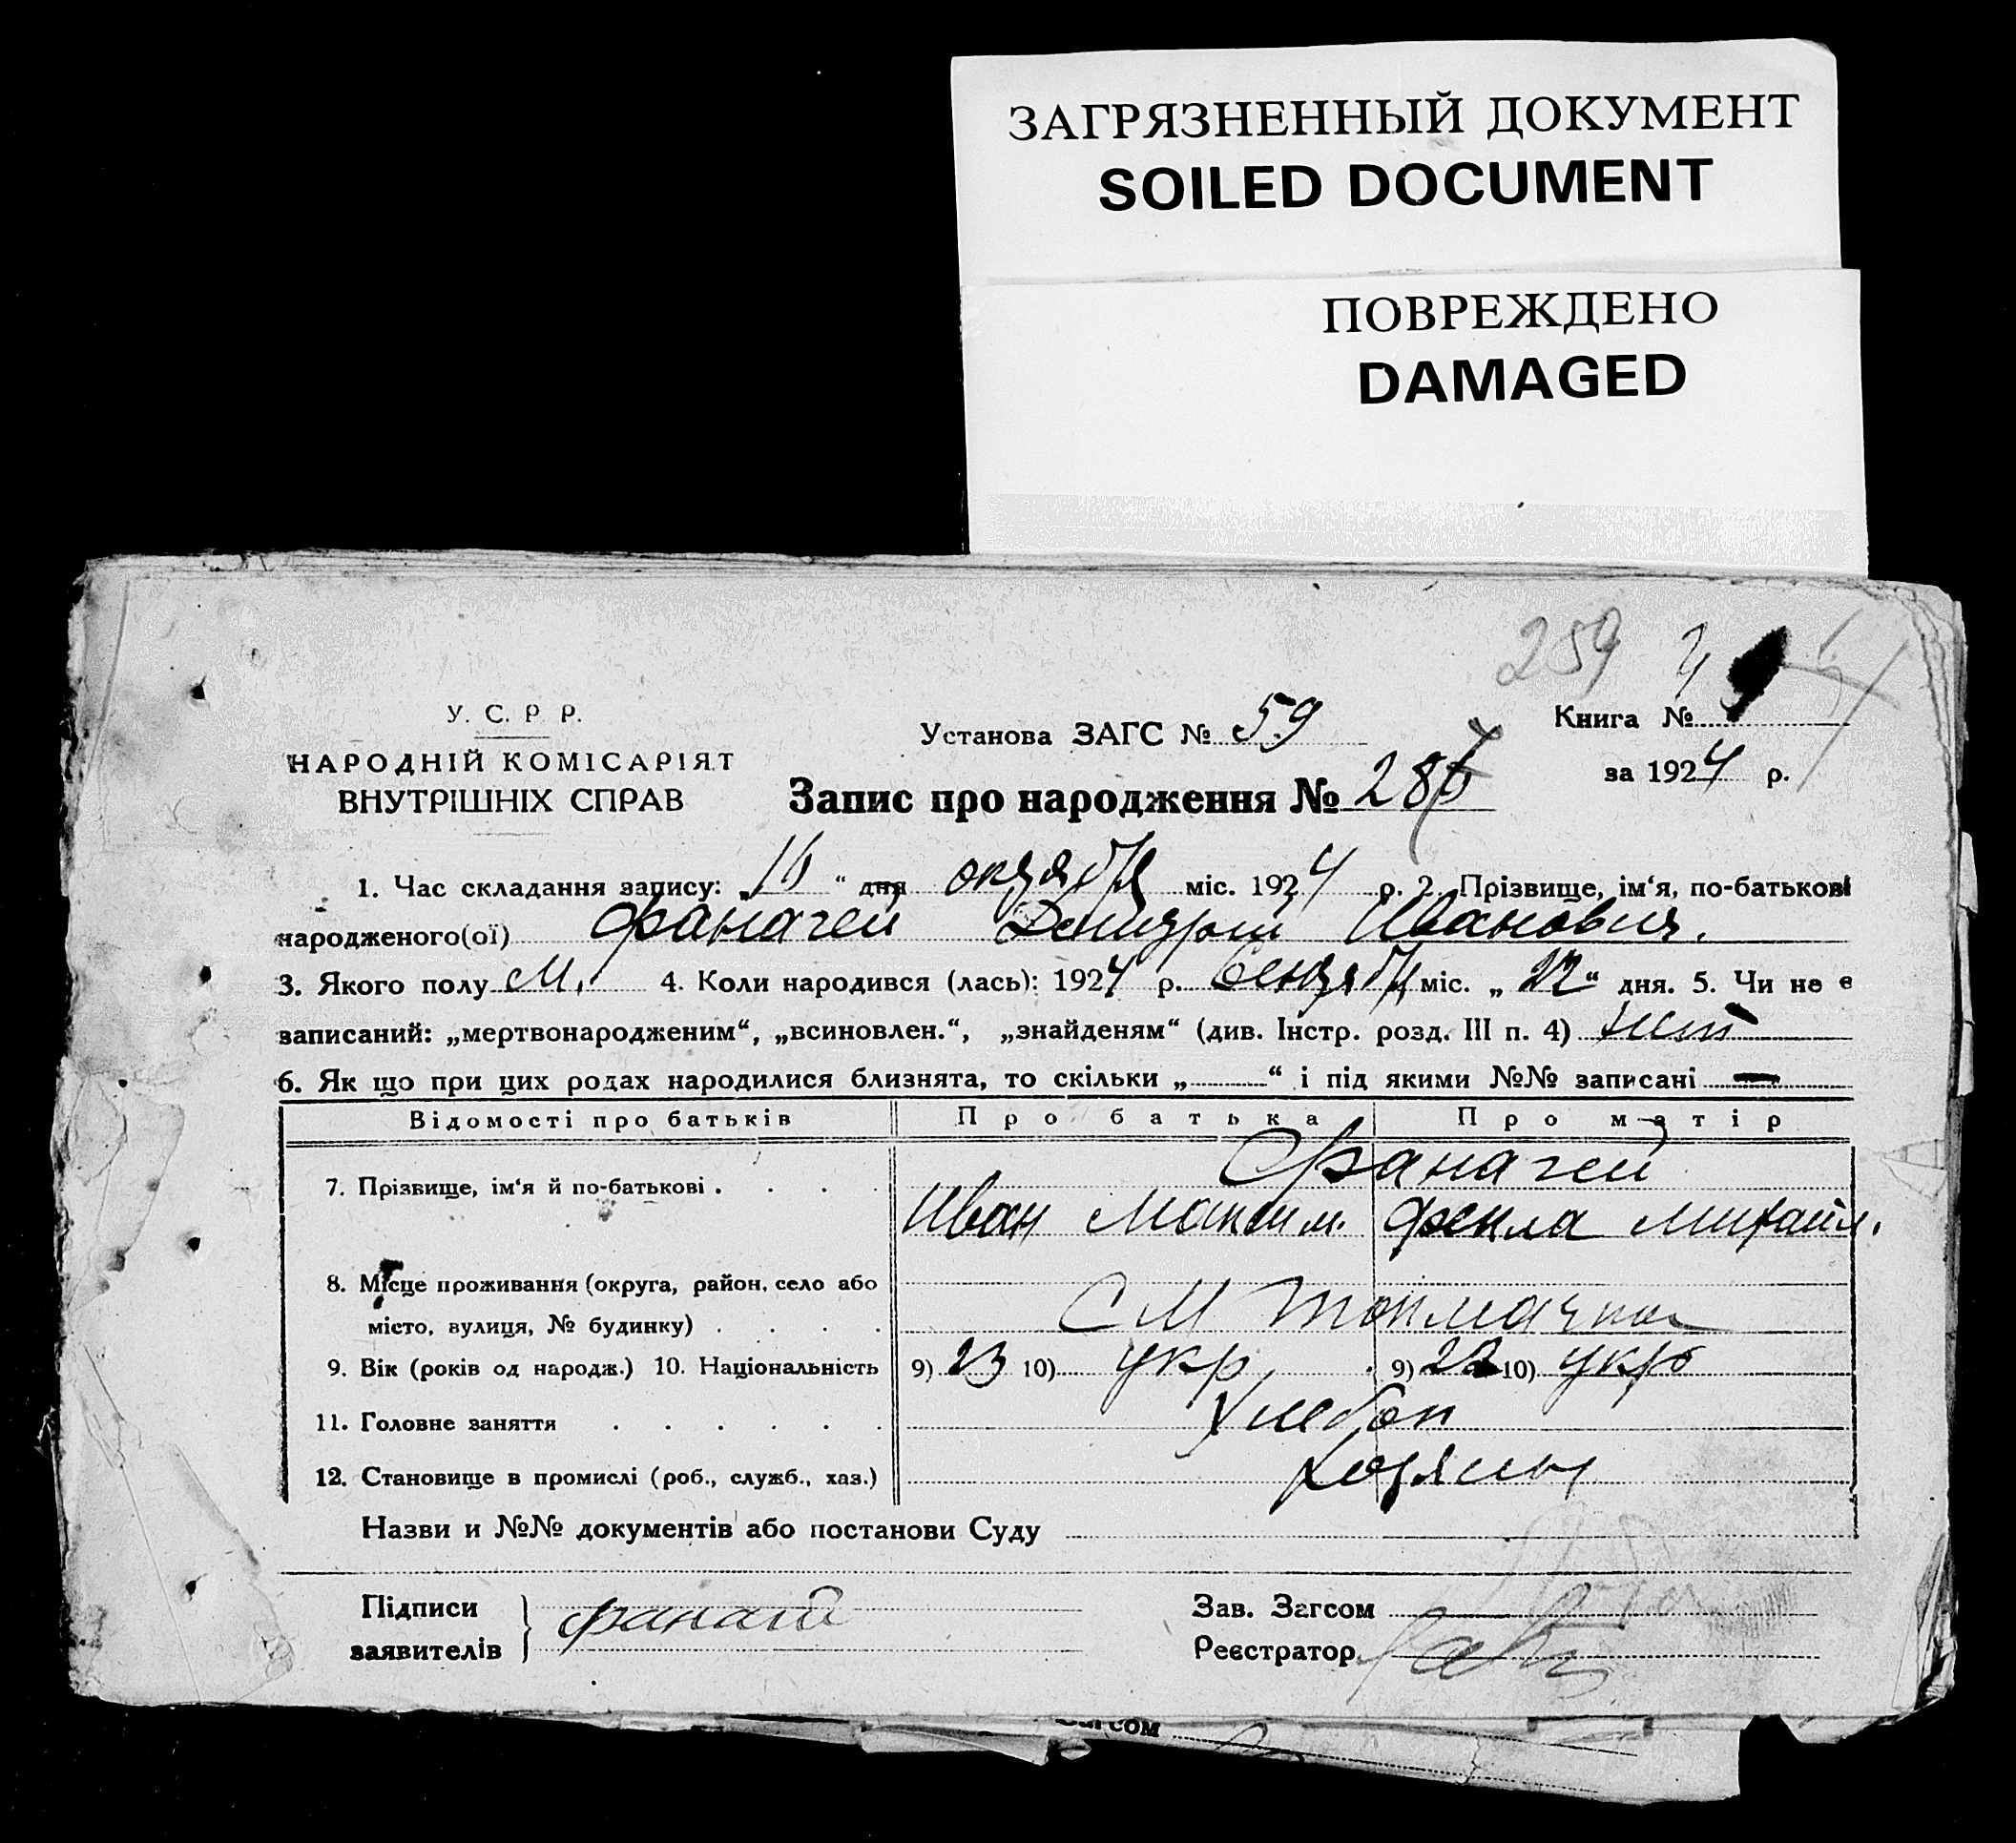 ЗАГРЯЗНЕННЫЙ ДОКУМЕНТ
SOILED DOCUMENT
ПОВРЕЖДЕНО
DAMAGED
259
У. С. Р Р.
НАРОДНІЙ КОМІСАРІЯТ
ВНУТРІШНІХ СПРАВ
Установа ЗАГС № 59
Книга №
за 1924 р.
Запис про народження № 28
1. Час складання запису: „16“ дня октября міс. 1924 р. 2. Прізвище, ім‘я, по-батькові
народженого(ої) Фаначей Дмитрий Иванович.
3. Якого полу М. 4. Коли народився (лась): 1924 р. Сентябр міс. „22“ дня. 5. Чи не є
записаний: „мертвонародженим“, „всиновлен.“, „знайденям“ (див. Інстр. розд. III п. 4) нет
6. Як що при цих родах народилися близнята, то скільки „ “ і під якими №№ записані —
Відомості про батьків Про батька Про матір
Фаначей
7. Прізвище, ім‘я й по-батькові . . . .
Иван Максим. Фекла Михайл.
8. Місце проживання (округа, район, село або
місто, вулиця, № будинку) . . . . С М Токмачка
9. Вік (років од народж.) 10. Національність 9) 23 10) укр 9) 22 10) укр
11. Головне заняття . . . . . . Хлебоп
12. Становище в промислі (роб., служб., хаз.) Хозяины
Назви и №№ документів або постанови Суду
Підписи
заявителів } Фаначей
Зав. Загсом
Реєстратор
Загсом